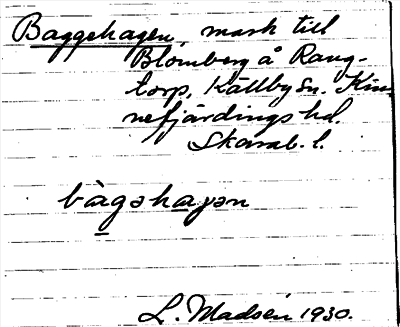 Baggehagen, mark till
Blomberg å Rang-
torp, Källby sn. Kin-
nefjärdings hd.
Skarab. l.
bàgahaɡən
L. Madsén 1930.